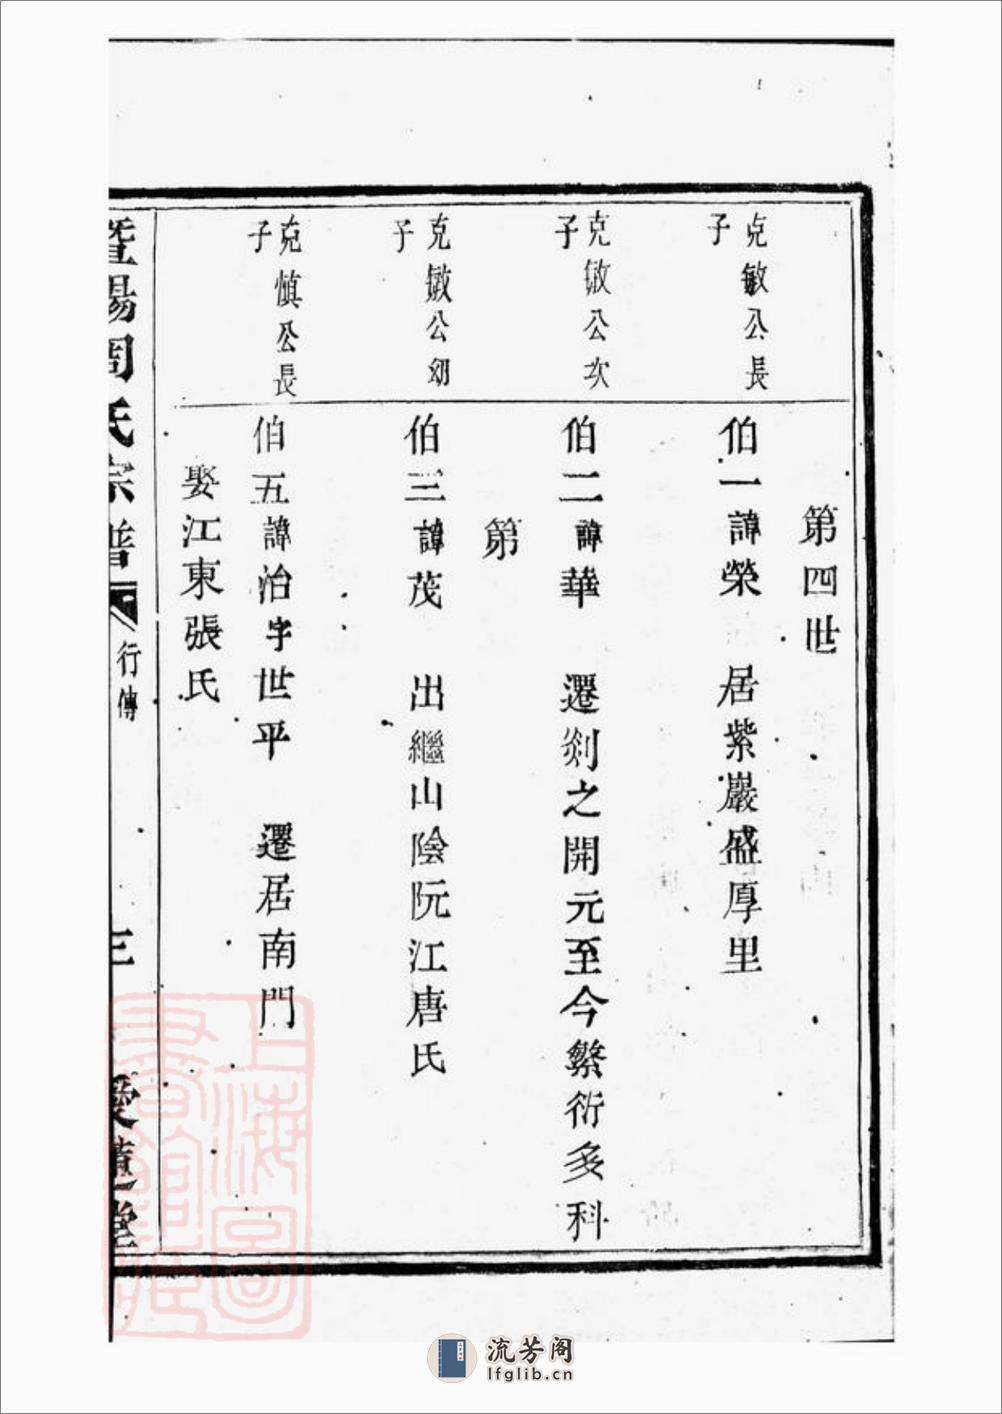 第四世
克敏公長
子
伯一諱榮 居紫巖盛厚里
克敏公次
子
伯二諱華 遷剡之開元至今繁衍多科
第
克敏公幼
子
伯三諱茂 出繼山陰阮江唐氏
克慎公長
子
伯五諱治字世平 遷居南門
娶江東張氏
暨陽周氏宗譜 行傳 三 愛蓮堂
上海圖
書館藏
流芳阁
lfglib.cn